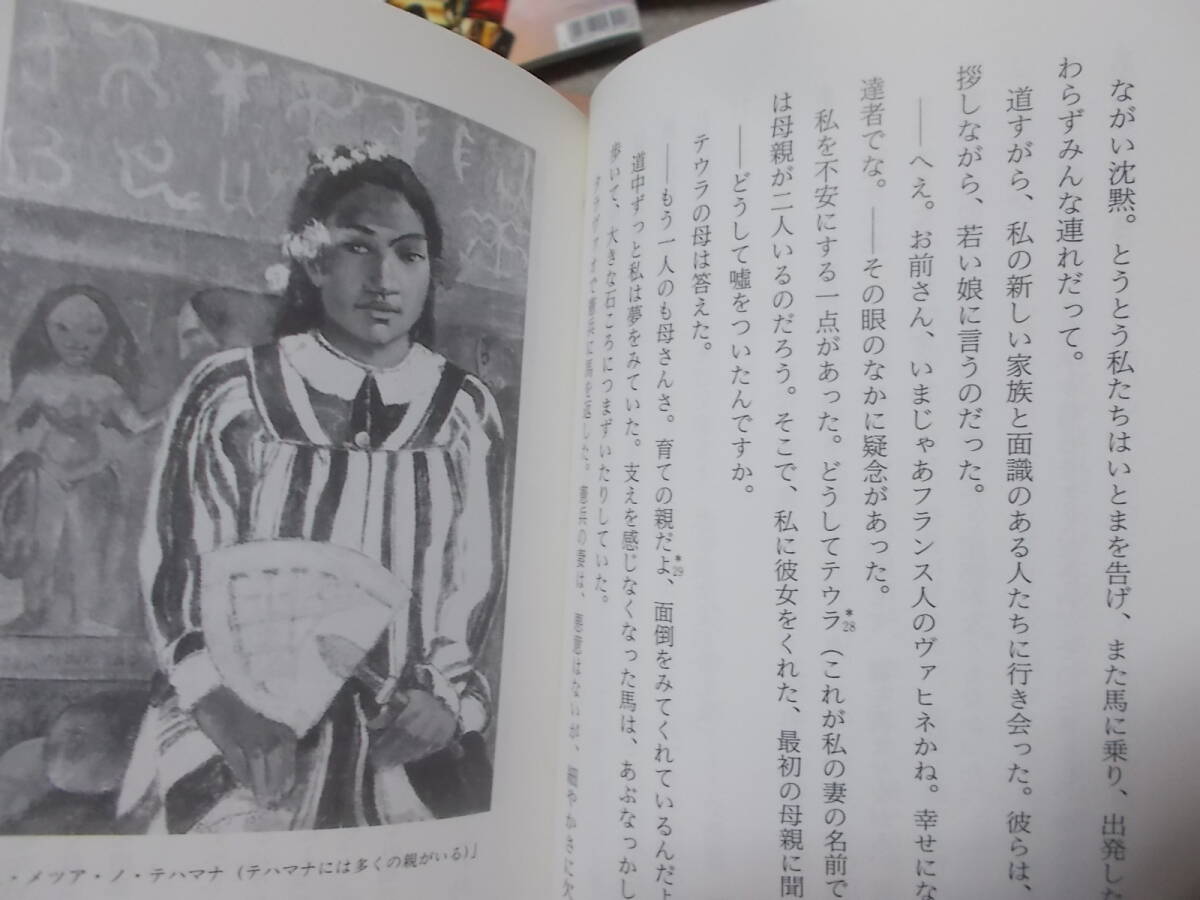 ながい沈黙。とうとう私たちはいとまを告げ、また馬に乗り、出発した
わらずみんな連れだって。
道すがら、私の新しい家族と面識のある人たちに行き会った。彼らは、
拶しながら、若い娘に言うのだった。
――へえ。お前さん、いまじゃあフランス人のヴァヒネかね。幸せにな
達者でな。――その眼のなかに疑念があった。
私を不安にする一点があった。どうしてテウラ*28(これが私の妻の名前で
は母親が二人いるのだろう。そこで、私に彼女をくれた、最初の母親に聞
――どうして嘘をついたんですか。
テウラの母は答えた。
――もう一人のも母さんさ。育ての親だよ*29、面倒をみてくれているんだよ
道中ずっと私は夢をみていた。支えを感じなくなった馬は、あぶなっかし
歩いて、大きな石ころにつまずいたりしていた。
で憲兵に馬を返した。憲兵の妻は、悪意はないが、細やかさに欠
・メツア・ノ・テハマナ(テハマナには多くの親がいる)」